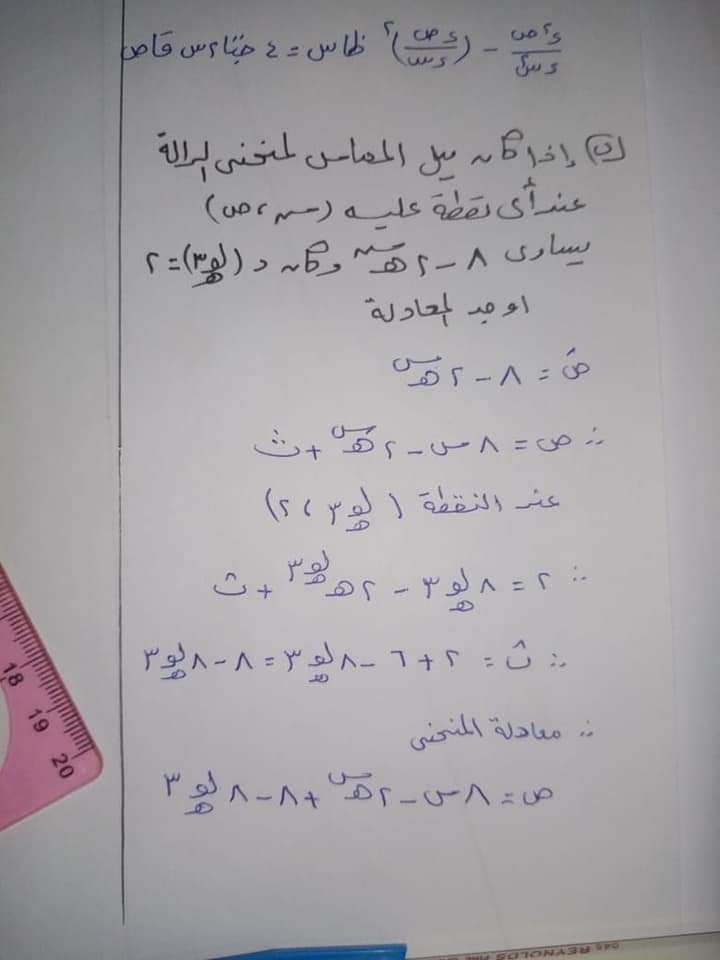 د٢ص/دس٢ - (دص/دس)٢ ظاس = ٤ جتا٢س قاص
(ب) إذا كان ميل المماس لمنحنى الدالة
عند أى نقطة عليه (س ، ص)
يساوى ٨ - ٢هـ^س وكان د (لو_هـ ٣) = ٢
اوجد المعادلة
صَ = ٨ - ٢هـ^س
∴ ص = ٨س - ٢هـ^س + ث
عند النقطة (لو_هـ ٣ ، ٢)
∴ ٢ = ٨ لو_هـ ٣ - ٢هـ^(لو_هـ ٣) + ث
∴ ث = ٢ + ٦ - ٨ لو_هـ ٣ = ٨ - ٨ لو_هـ ٣
∴ معادلة المنحنى
ص = ٨س - ٢هـ^س + ٨ - ٨ لو_هـ ٣
18 19 20
REYNOLDS